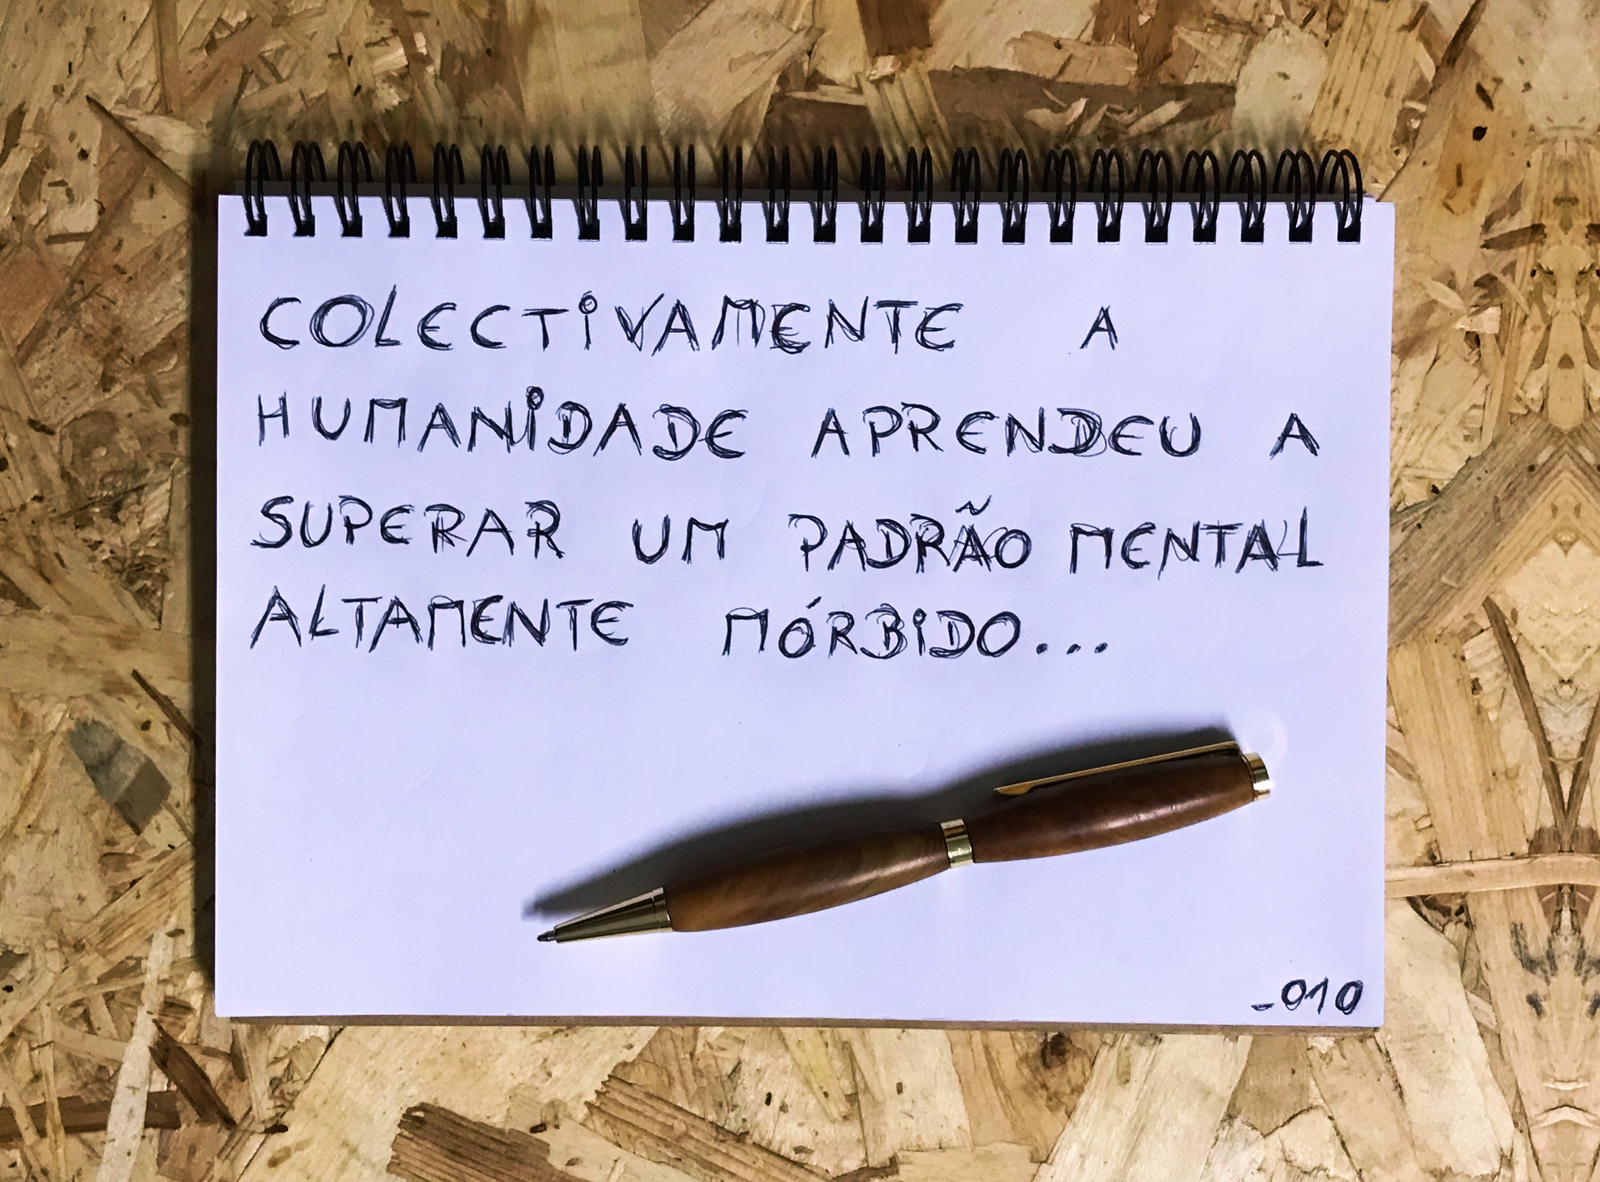 COLECTIVAMENTE A
HUMANIDADE APRENDEU A
SUPERAR UM PADRÃO MENTAL
ALTAMENTE MÓRBIDO...
-010